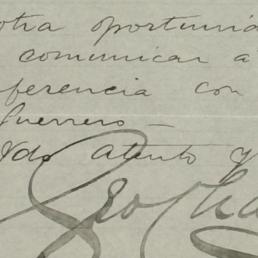 otra oportunid
comunicar a
ferencia con
Guerrero—
atento y